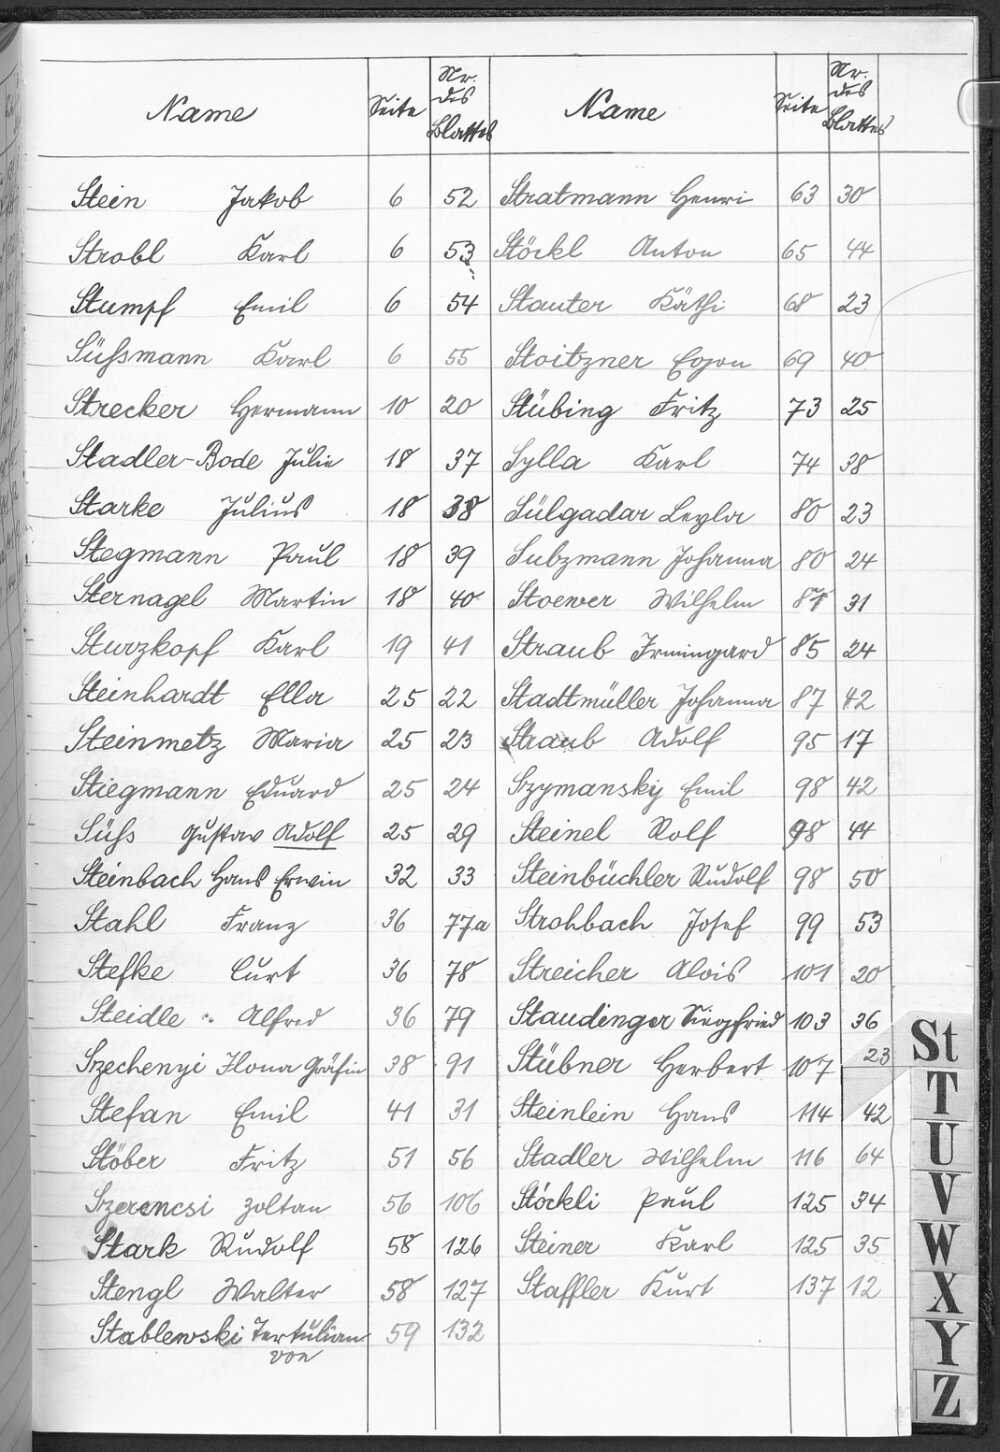 Name Seite Nr. des Blattes Name Seite Nr. des Blattes
Stein Jakob 6 52 Stratmann Henri 63 30
Strobl Karl 6 53 Stöckl Anton 65 44
Stumpf Emil 6 54 Stauter Käthi 68 23
Süßsmann Karl 6 55 Stoitzner Egon 69 40
Strecker Hermann 10 20 Stübing Fritz 73 25
Stadler-Bode Julie 18 37 Sylla Karl 74 38
Starke Julius 18 38 Sülgadar Leyla 80 23
Stegmann Paul 18 39 Subzmann Johanna 80 24
Sternagel Martin 18 40 Stoewer Wilhelm 31
Sturzkopf Karl 19 41 Straub Irmingard 85 24
Steinhardt Ella 25 22 Stadtmüller Johanna 87 42
Steinmetz Maria 25 23 Straub Adolf 95 17
Stiegmann Eduard 25 24 Szymansky Emil 98 42
Süßs Gustav Adolf 25 29 Steinel Rolf 98 44
Steinbach Hans Erwin 32 33 Steinbüchler Rudolf 98 50
Stahl Franz 36 77a Strohbach Josef 99 53
Stefke Curt 36 78 Streicher Alois 101 20
Steidle Alfred 36 79 Staudinger Siegfried 103 36
Szechenyi Ilona Gräfin 38 91 Stübner Herbert 107 23
Stefan Emil 41 31 Steinlein Hans 114 42
Stöber Fritz 51 56 Stadler Wilhelm 116 64
Szerencsi Zoltan 56 106 Stöckli Paul 125 34
Stark Rudolf 58 126 Steiner Karl 125 35
Stengl Walter 58 127 Staffler Kurt 137 12
Stablewski Tertulian 59 132
von
St
T
U
V
W
X
Y
Z